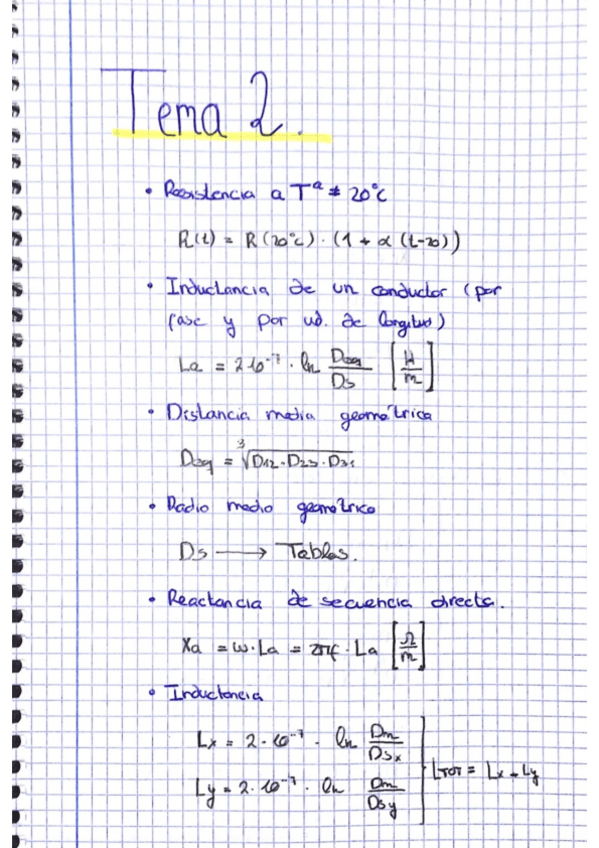 Tema 2.
• Resistencia a Tª ≠ 20°C
R(t) = R(20°C) · (1 + α (t-20))
• Inductancia de un conductor (por
fase y por ud. de longitud)
La = 2·10⁻⁷ · ln Deq/Ds [H/m]
• Distancia media geométrica
Deq = ³√D12·D23·D31
• Radio medio geométrico
Ds ⟶ Tablas.
• Reactancia de secuencia directa.
Xa = ω·La = 2πf·La [Ω/m]
• Inductancia
Lx = 2·10⁻⁷ · ln Dm/Dsx
Ly = 2·10⁻⁷ · ln Dm/Dsy
LTOT = Lx + Ly